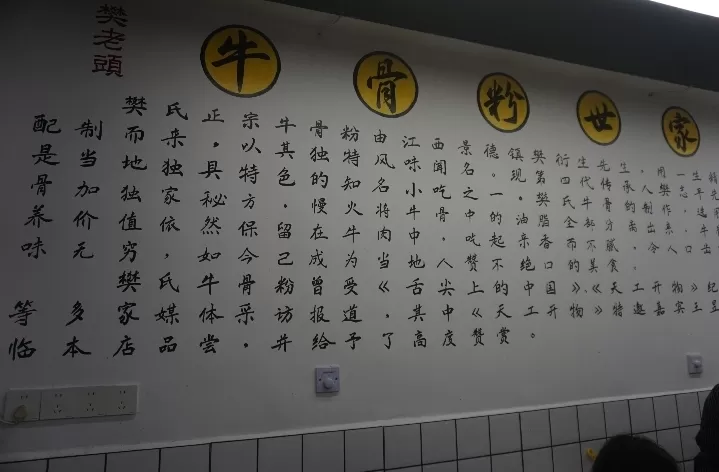 樊老頭
牛骨粉世家
樊氏正宗牛骨粉由江西景德镇樊衍生先生，用一生精
配制而来，以其独特风味闻名。现第四代传承人樊志平先
是当地独具特色的知名小吃之一。樊氏牛骨的制作，选
骨加独家秘方，慢火将牛骨中的油脂全部分离出来，牛
养价值依然保留在牛肉中，吃起来香而不腻，令人口
味无穷，如今已成为当地人赞不绝口的美食，
樊氏牛骨粉曾受《舌尖上的中国》、《天工开物》纪
等多家媒体采访报道，其中《天工开物》特邀嘉宾王呈
临本店品尝，并给予了高度赞赏。